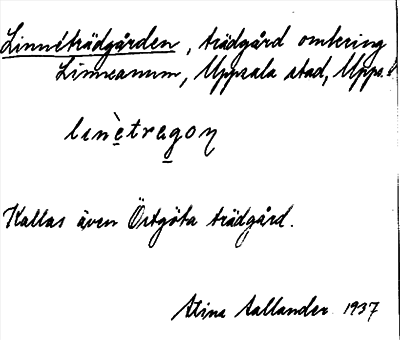 Linnéträdgården, trädgård omkring
Linneanum, Uppsala stad, Upps.
linètragoɳ
Kallas även Östgöta trädgård.
Stina Aallander 1937